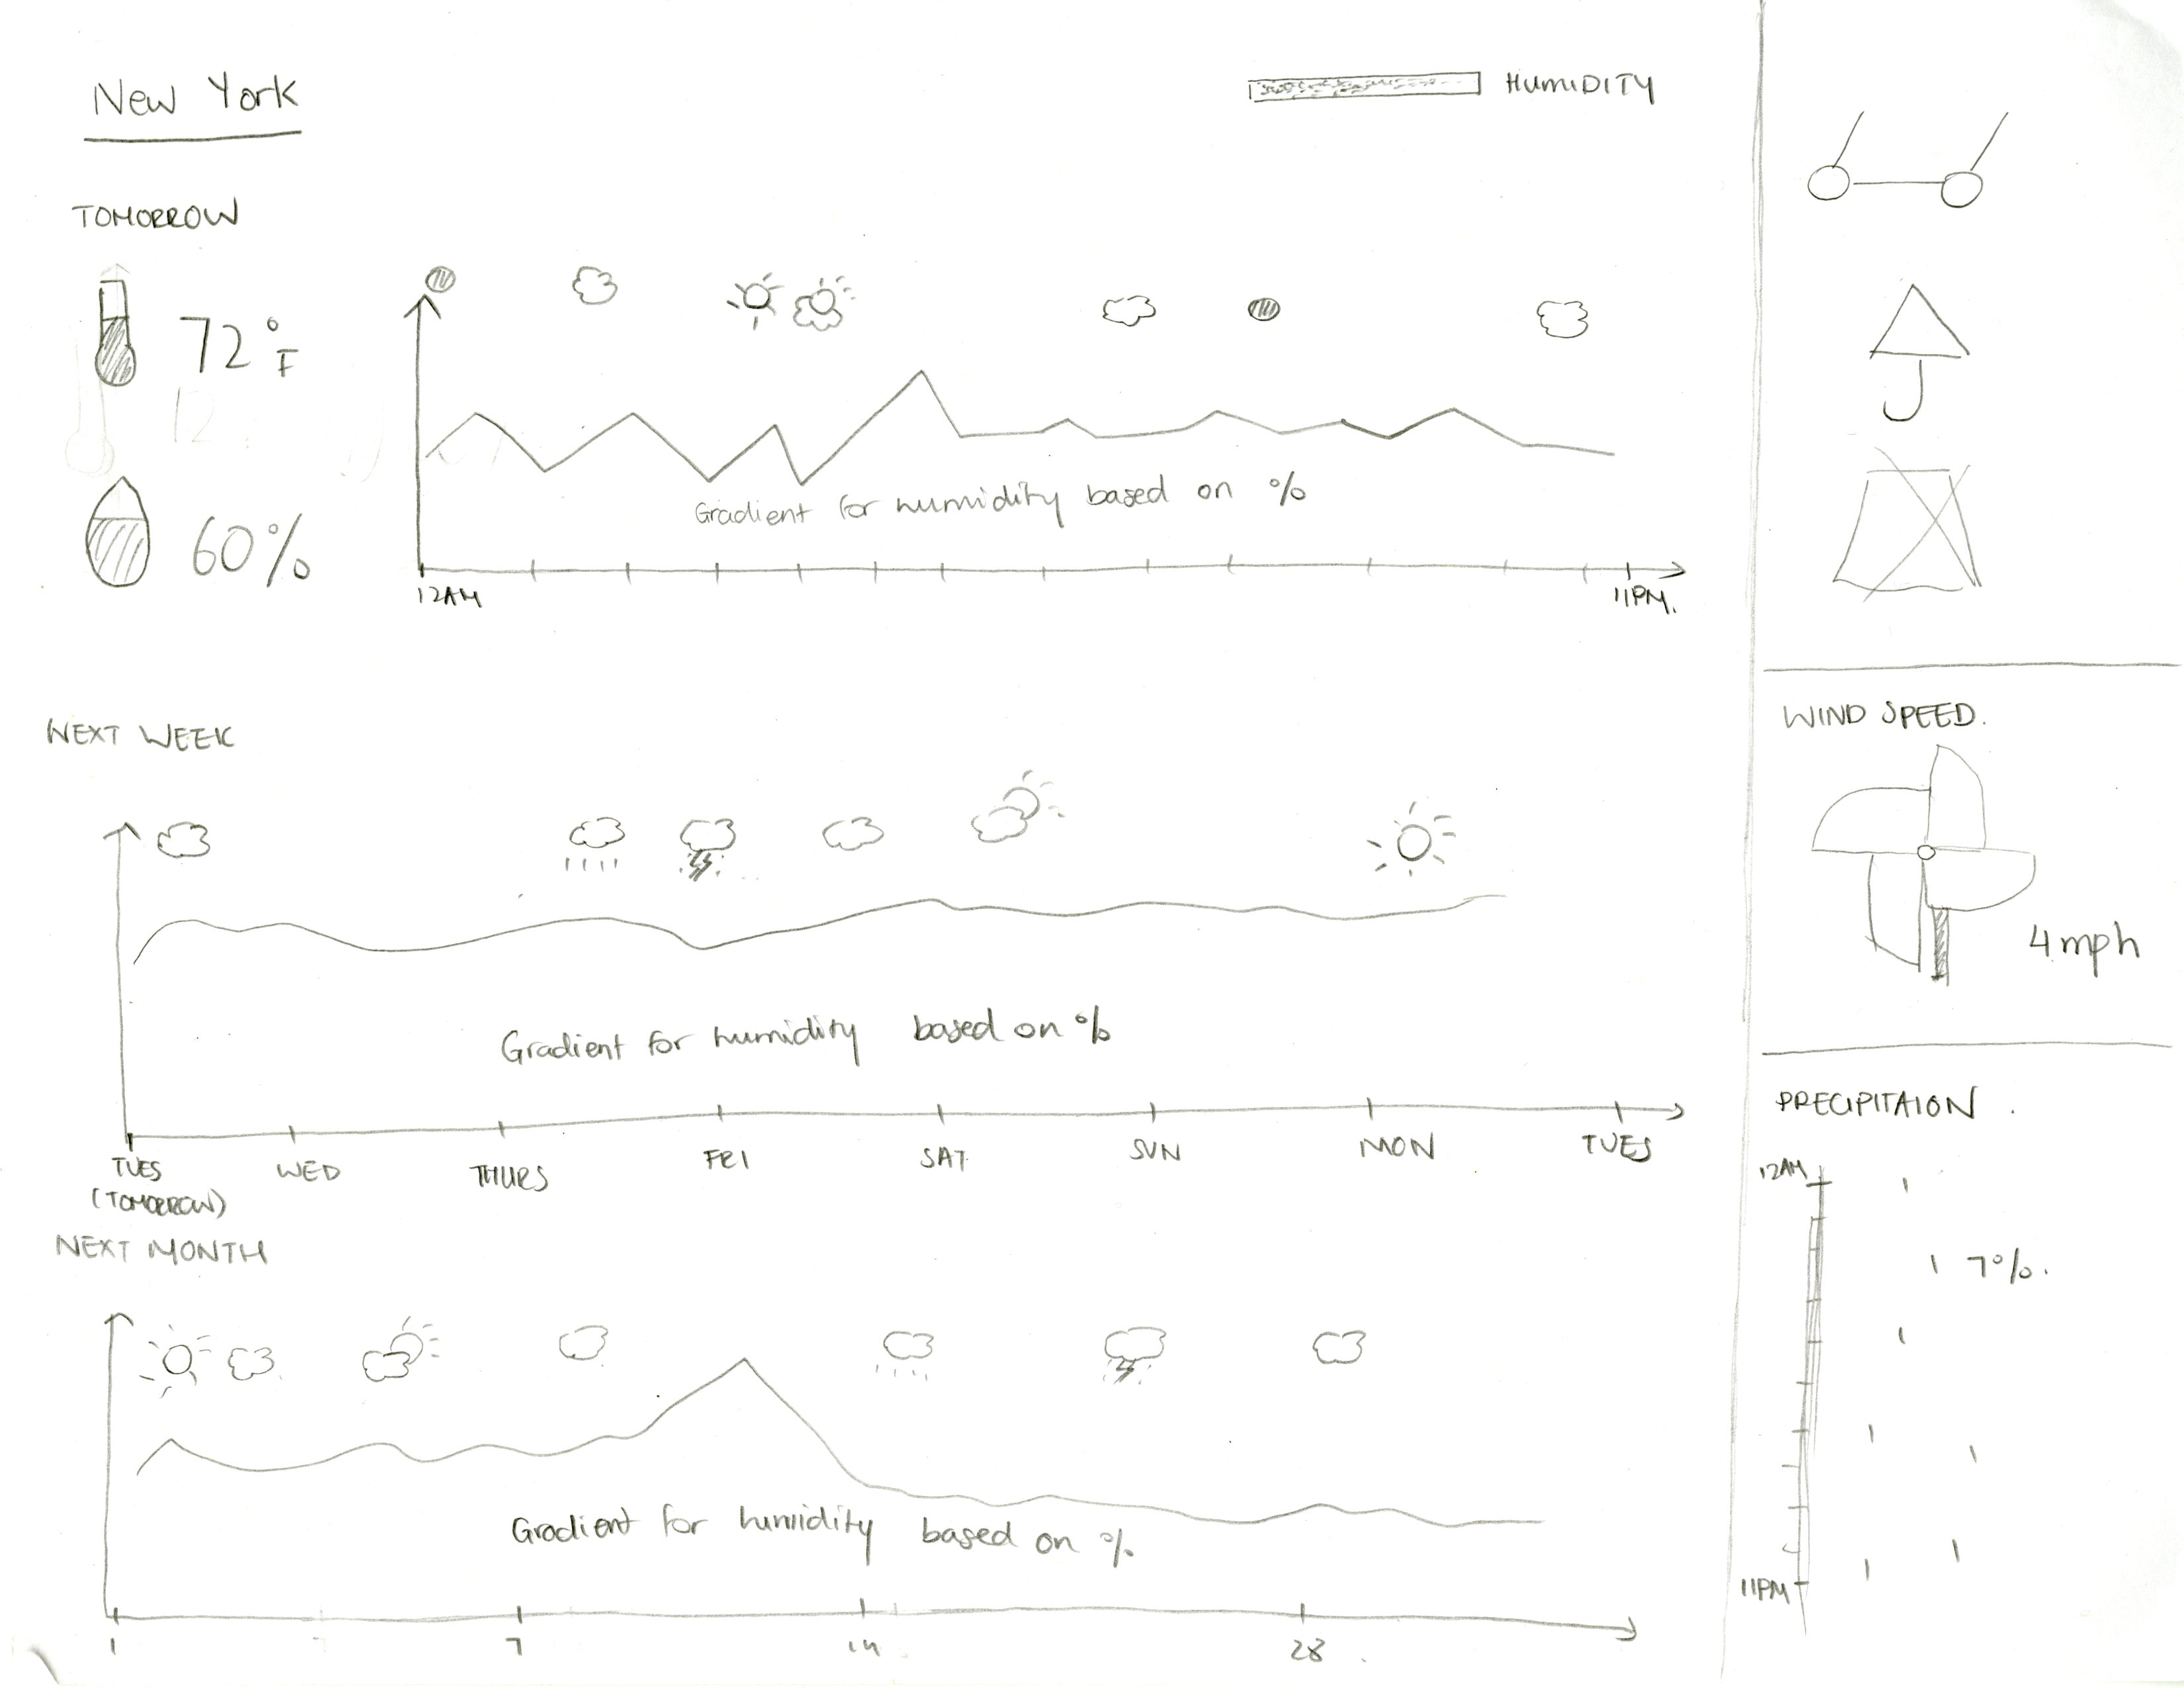 New York
HUMIDITY
TOMORROW
72°F
60%
Gradient for humidity based on %
12AM
11PM.
NEXT WEEK
Gradient for humidity based on %
TUES
(TOMORROW)
WED
THURS
FRI
SAT
SUN
MON
TUES
NEXT MONTH
Gradient for humidity based on %
1
7
14
28
WIND SPEED.
4 mph
PRECIPITAION
12AM
7%.
11PM